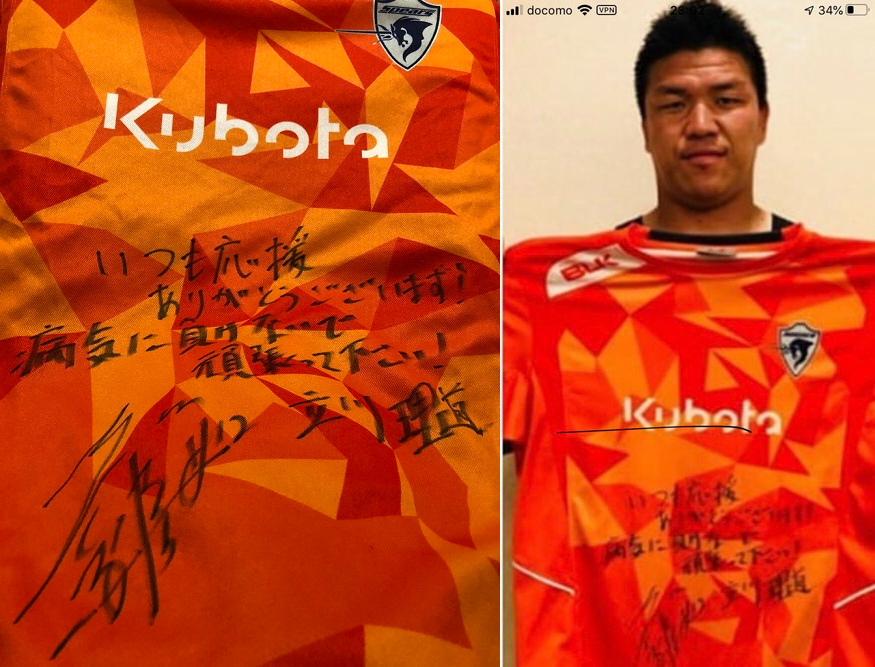 SPEARS
Kubota
いつも応援
ありがとうございます!
病気に負けないで
頑張って下さい!
立川理道
docomo VPN 34%
BLK
Kubota
いつも応援
ありがとうございます!
病気に負けないで
頑張って下さい!
立川理道